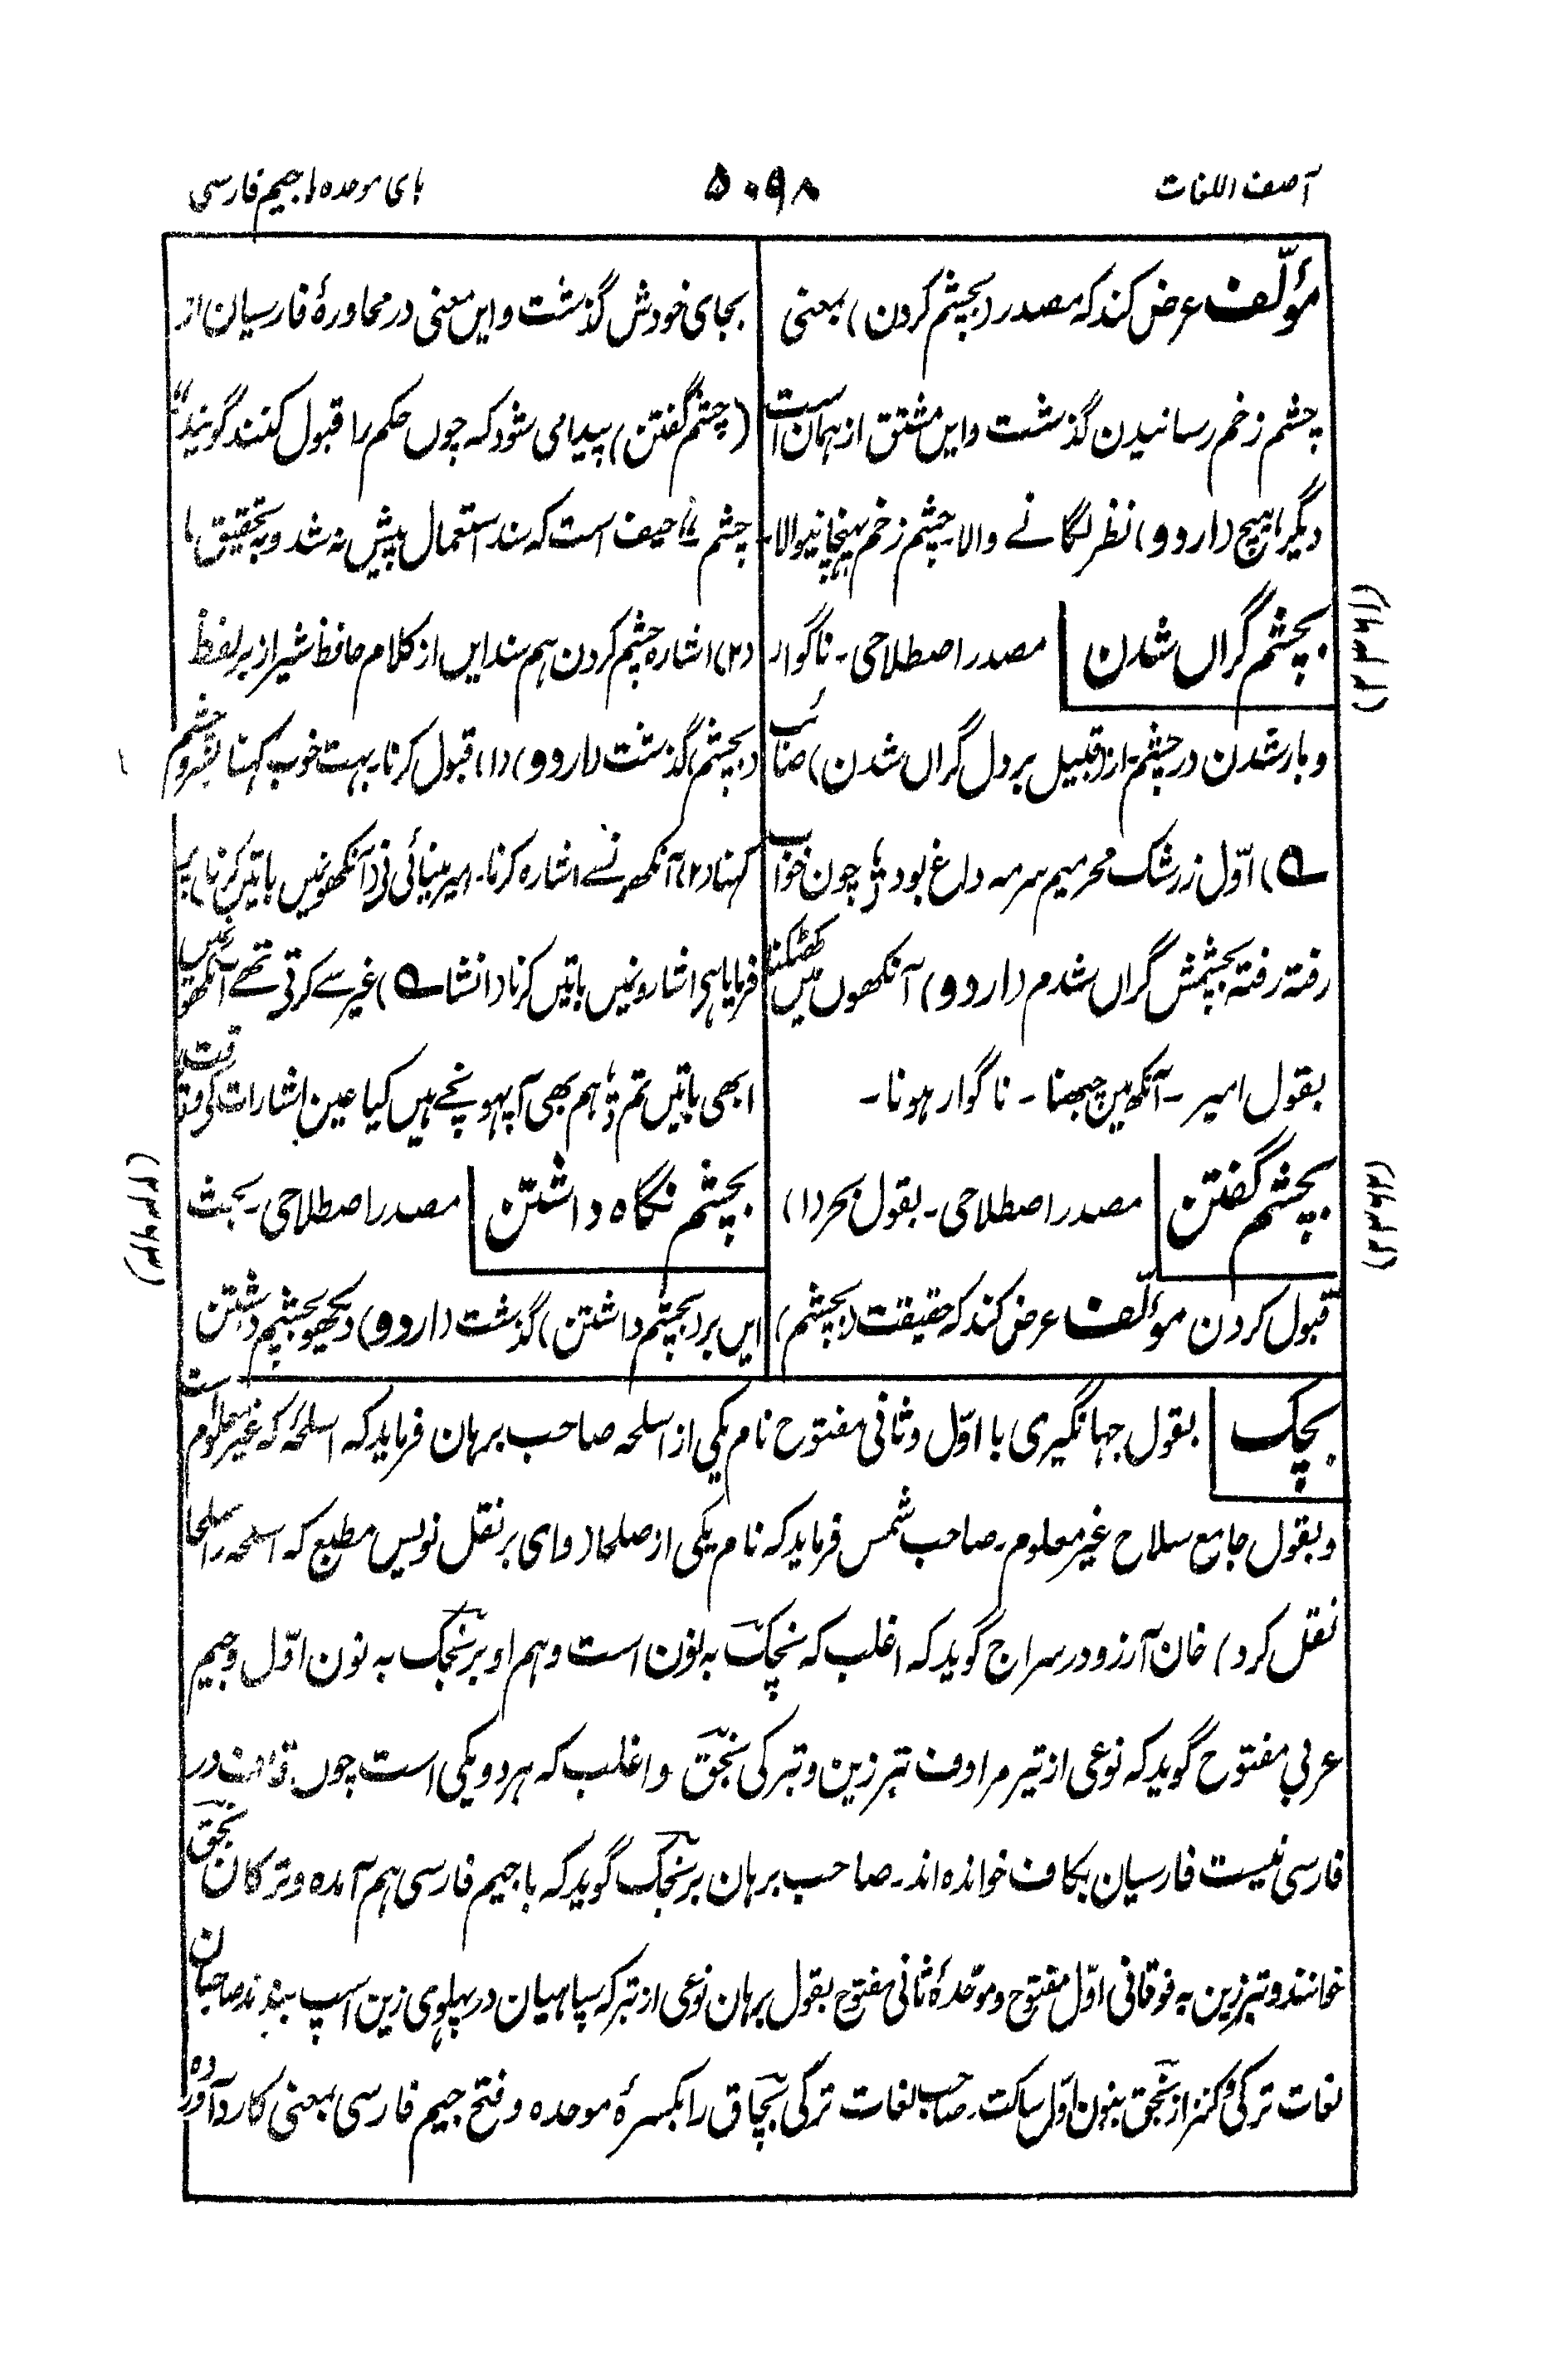 آصف اللغات
۵۰۹۸
بای موحده با جیم فارسی
مؤلّف عرض کند که مصدر (بچشم کردن) بمعنی
چشم زخم رسانیدن گذشت و این مشتق از همان است
دیگر هیچ (اردو) نظر لگانے والا۔ چشم زخم پہنچانیوالا۔
بچشم گراں شدن | مصدر اصطلاحی۔ ناگوار
و بار شدن در چشم۔ از قبیل بر دل گراں شدن (صائب
ے) اوّل ز رشک محرمیم سرمه داغ بود ؛ چون خواب
رفته رفته بچشمش گراں شدم (اردو) آنکھوں میں کھٹکنا
بقول امیر۔ آنکھ میں چبھنا۔ ناگوار ہونا۔
بچشم گفتن | مصدر اصطلاحی۔ بقول بحر (۱)
قبول کردن مؤلّف عرض کند که حقیقت (بچشم)
بجای خودش گذشت و این معنی در محاورهٔ فارسیان از
(چشم گفتن) پیدا می شود که چوں حکم را قبول کنند گویند
چشم ؛ حیف است که سند استعمال پیش نه شد و بتحقیق ما
(۲) اشاره چشم کردن هم سند ایں از کلام حافظ شیراز بر لفظ
(بچشم) گذشت (اردو) (۱) قبول کرنا۔ بہت خوب کہنا بسر و چشم
کہنا (۲) آنکھ سے اشارہ کرنا۔ امیر مینائی نے (آنکھوں میں باتیں کرنا) پر
فرمایا ہے اشاروں میں باتیں کرنا (انشا ے) غیر سے کرتی تھے آنکھوں میں
ابھی باتیں تم ؛ ہم بھی آ پہونچے ہیں کیا عین اشارات کے وقت
بچشم نگاه داشتن | مصدر اصطلاحی۔ بحث
ایں بر (بچشم داشتن) گذشت (اردو) دیکھو بچشم داشتن
بچک | بقول جهانگیری با اوّل و ثانی مفتوح نام یکی از اسلحه صاحب برهان فرماید که اسلحهٔ که غیر معلوم است
و بقول جامع سلاح غیر معلوم۔ صاحب شمس فرماید که نام یکی از صلحا (وای بر نقل نویس مطبع که اسلحه را صلحا
نقل کرد) خان آرزو در سراج گوید که اغلب که نچک به نون است و هم او بر نجک به نون اوّل و جیم
عربی مفتوح گوید که نوعی از تیر مرادف تبرزین و تبر کی نجق و اغلب که هر دو یکی است چوں قاف در
فارسی نیست فارسیان بکاف خوانده اند۔ صاحب برهان بر نجک گوید که با جیم فارسی هم آمده و ترکان نجق
خوانند و تبرزین به فوقانی اوّل مفتوح و موحّدهٔ ثانی مفتوح بقول برهان نوعی از تبر که سپاهیان در پهلوی زین اسپ بندند صاحبان
لغات ترکی و کنز از نجق بنون اوّل ساکت۔ صاحب لغات ترکی بچاق را بکسرهٔ موحده و فتح جیم فارسی بمعنی کارد آورده
(۲۳۹۲)
(۲۳۹۳)